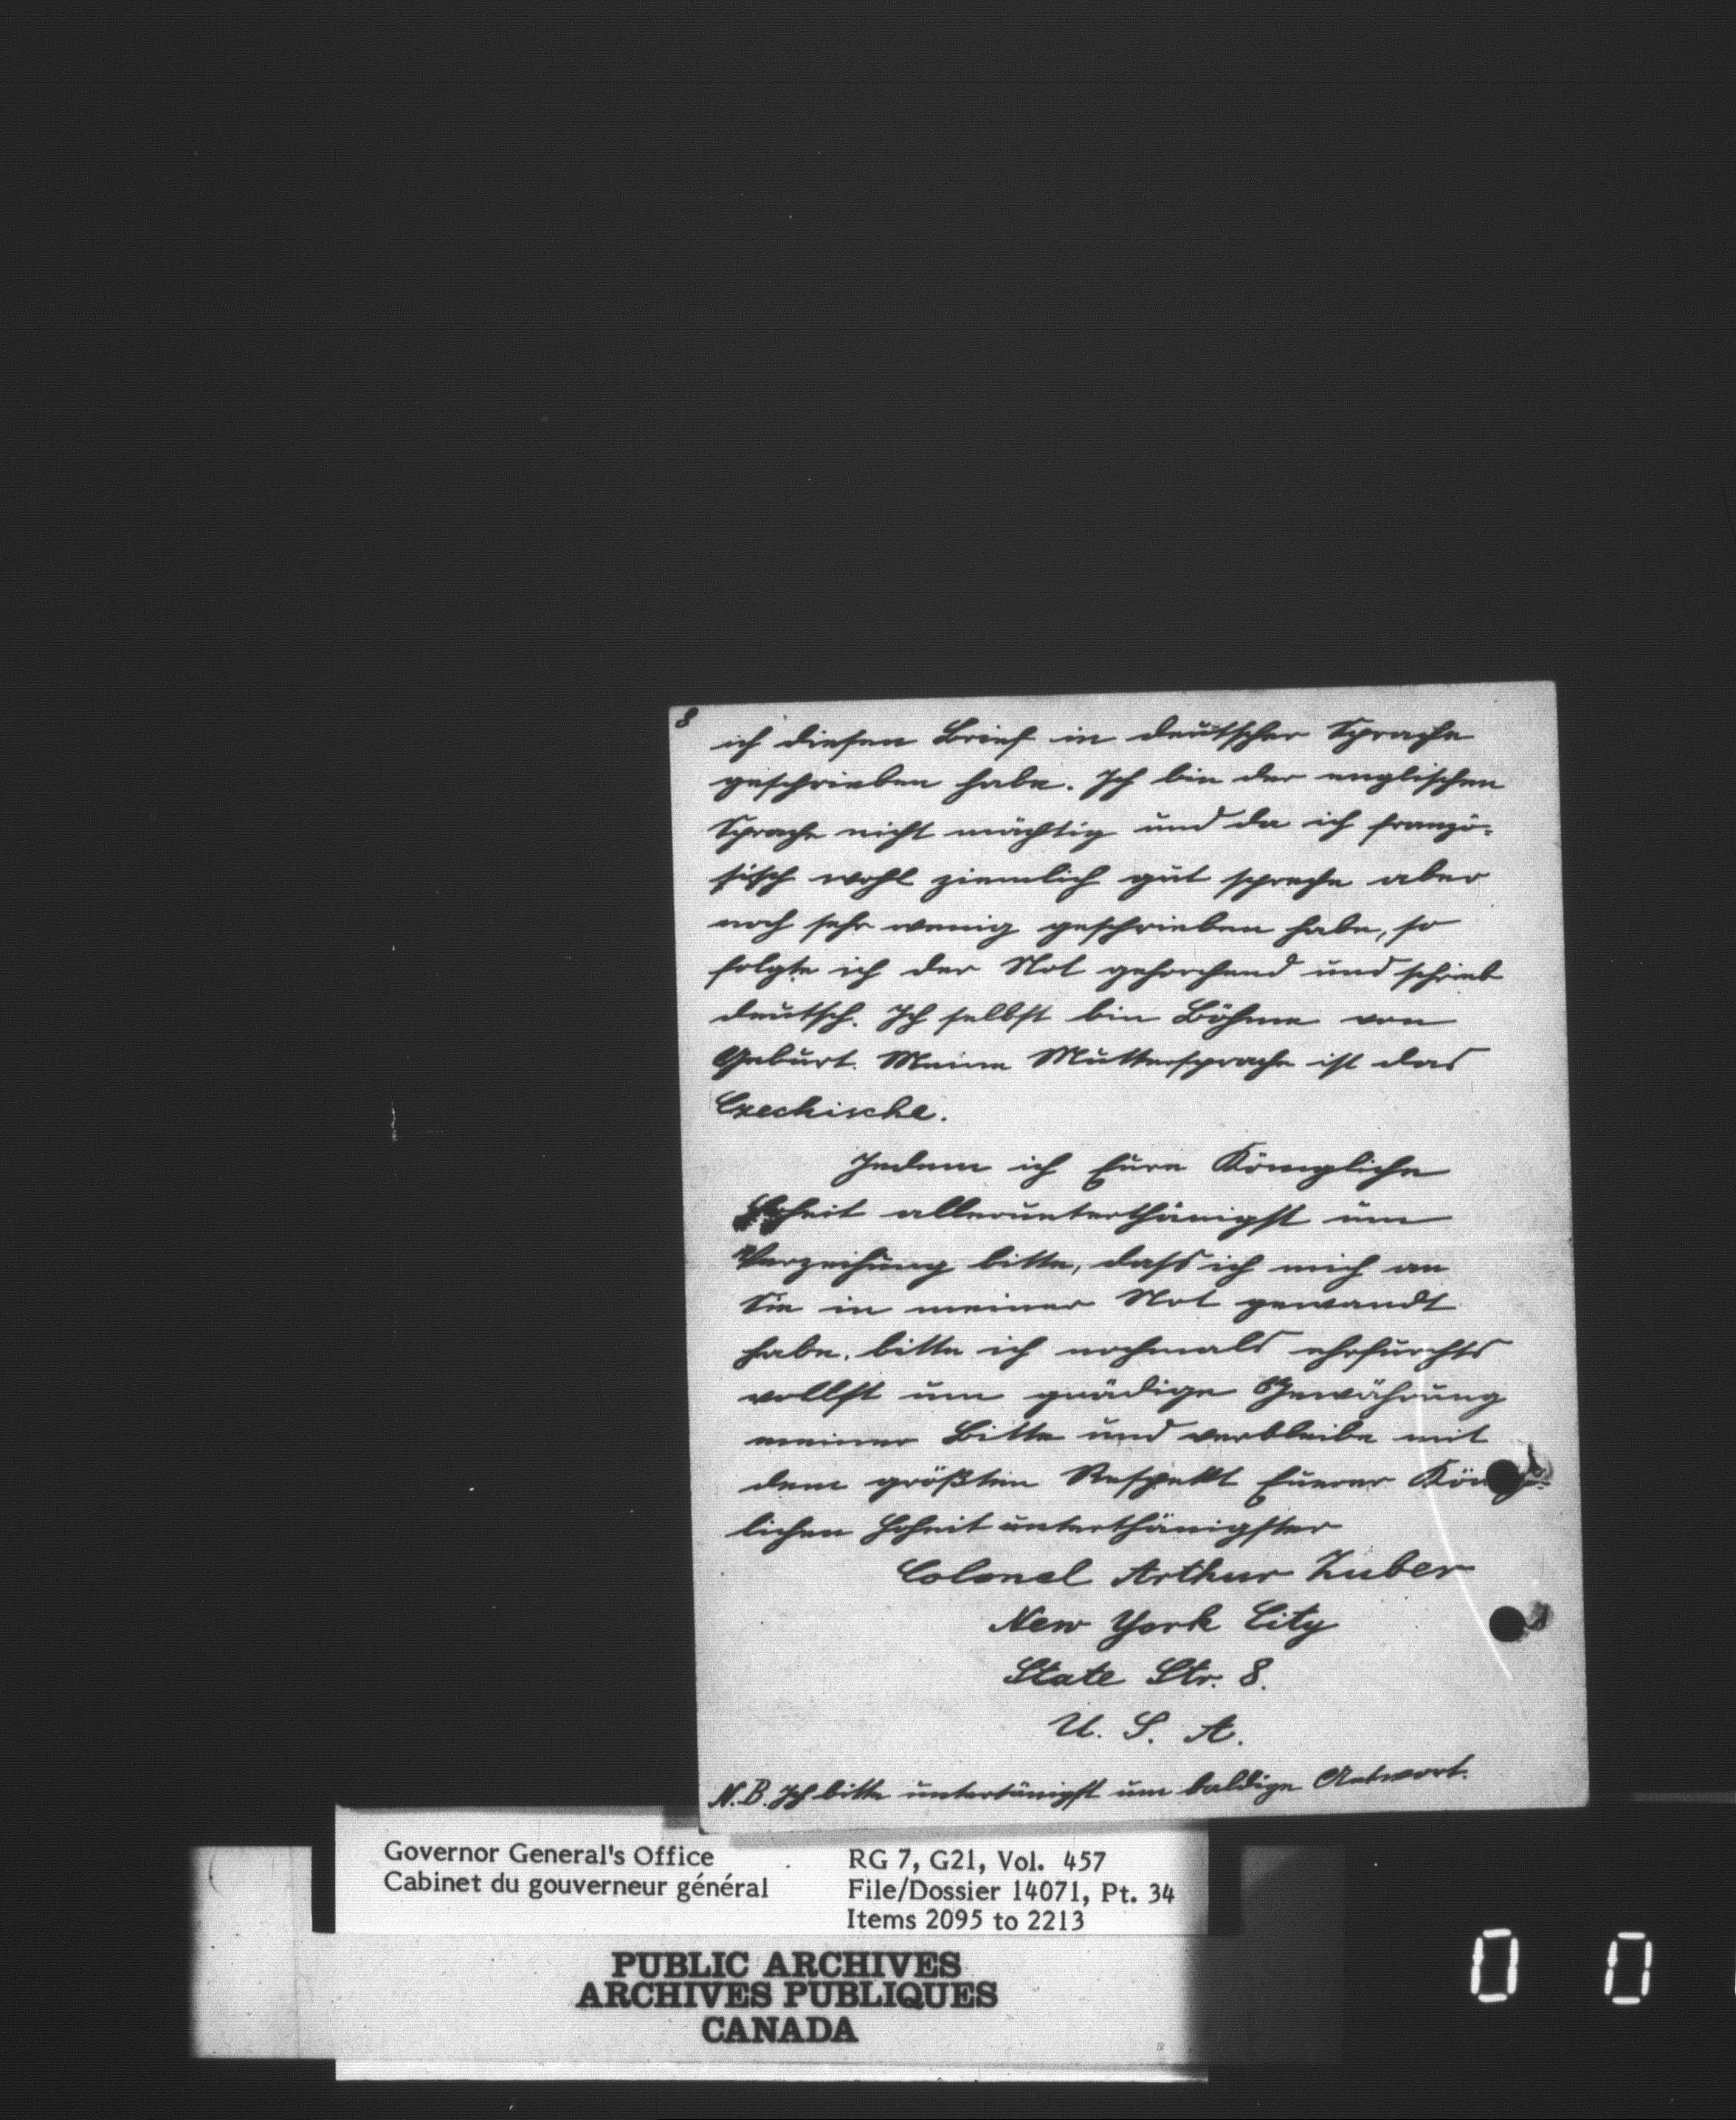 8
ich diesen Brief in deutscher Sprache
geschrieben habe. Ich bin der englischen
Sprache nicht mächtig und da ich franzö-
sisch wohl ziemlich gut spreche aber
noch sehr wenig geschrieben habe, so
folgte ich der Not gehorchend und schrieb
deutsch. Ich selbst bin Böhme von
Geburt. Meine Muttersprache ist das
Czechische.
Indem ich Eure Königliche
Hoheit allerunterthänigst um
Verzeihung bitte, dass ich mich an
Sie in meiner Not gewandt
habe, bitte ich nochmals ehrfurchts
vollst um gnädige Gewährung
meiner Bitte und verbleibe mit
dem größten Respekt Euerer König-
lichen Hoheit unterthänigster
Colonel Arthur Zuber
New York City
State Str. 8.
U. S. A.
N.B. Ich bitte untertänigst um baldige Antwort.
Governor General's Office
Cabinet du gouverneur général
RG 7, G21, Vol. 457
File/Dossier 14071, Pt. 34
Items 2095 to 2213
PUBLIC ARCHIVES
ARCHIVES PUBLIQUES
CANADA
0 0